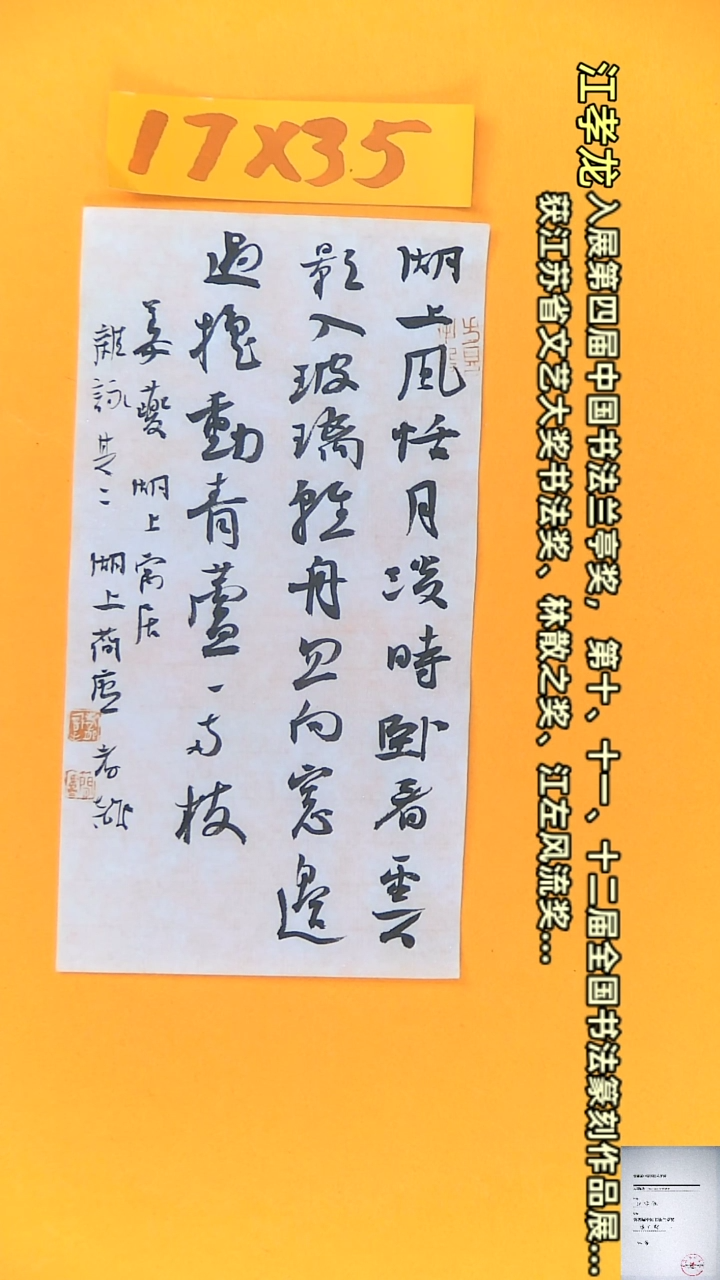 17X35
湖上風恬月淡時卧看雲
影入玻璃輕舟忽向窓邊
過搖動青蘆一兩枝
姜夔 湖上寓居
雜詠其二 湖上荷廬孝龍
江孝龙 入展第四届中国书法兰亭奖，第十、十一、十二届全国书法篆刻作品展...
获江苏省文艺大奖书法奖、林散之奖、江左风流奖...